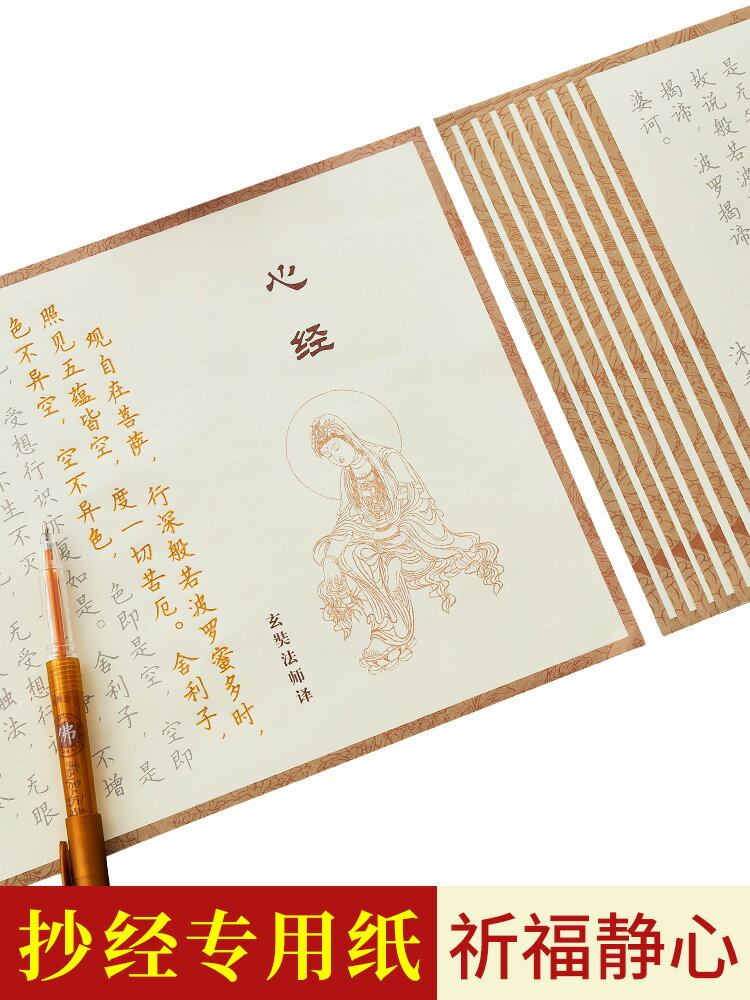 是无
故说般若波
揭谛，波罗揭谛
婆诃。
心经
玄奘法师译
观自在菩萨，行深般若波罗蜜多时，
照见五蕴皆空，度一切苦厄。舍利子，
色不异空，空不异色，色即是空，空即
受想行识，亦复如是。舍利子，是
不生不灭
不增
无受想行
无眼
触法，
佛
抄经专用纸
祈福静心